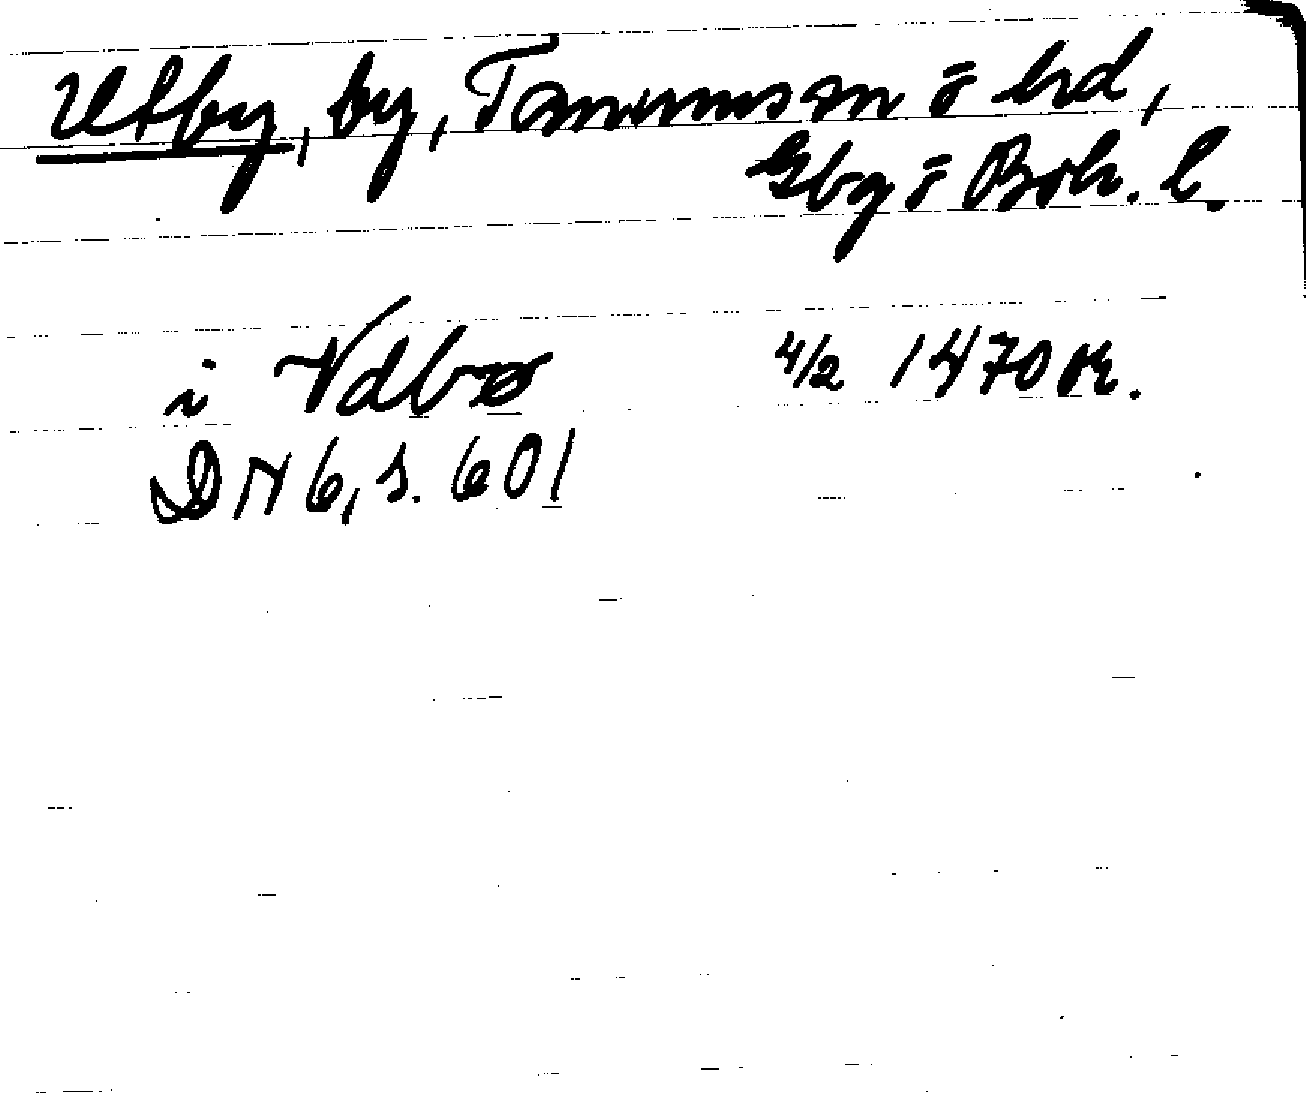 Utby, by, Tanums sn o hd,
Gbg o Boh. l.
i Vdbø 4/2 1470 or.
DN 6, s. 601